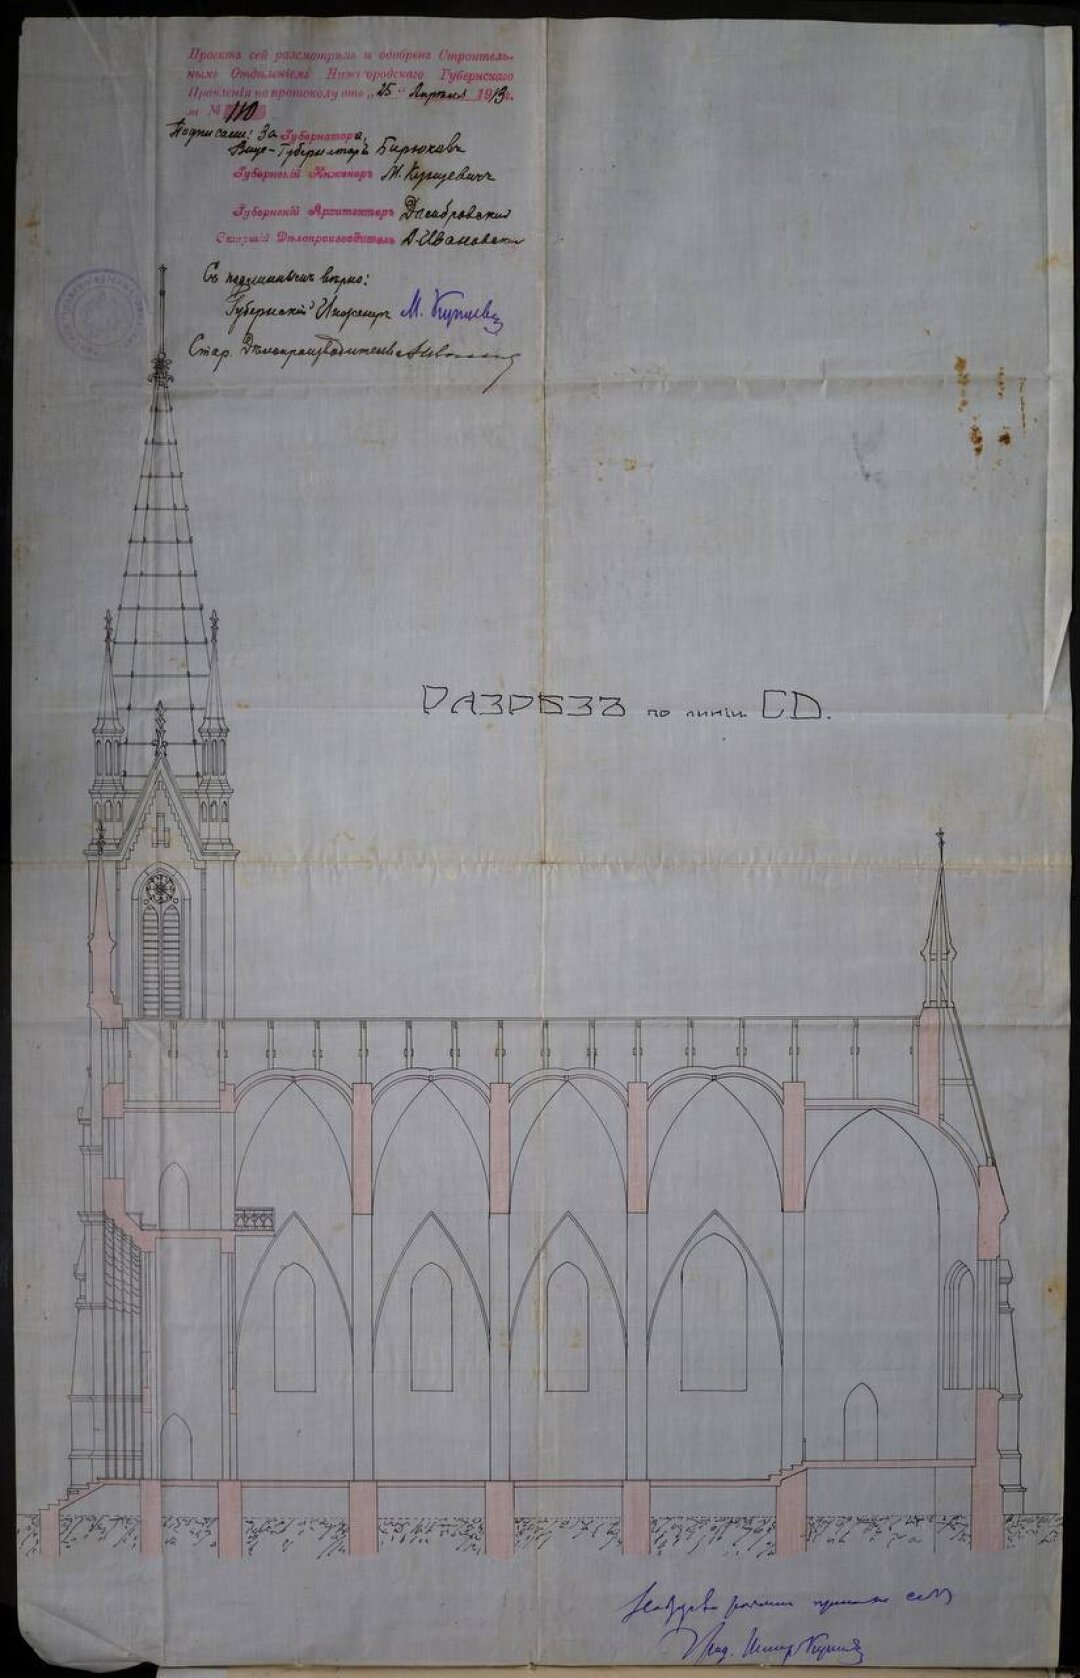 Проектъ сей разсмотрѣнъ и одобренъ Строитель-
нымъ Отдѣленіемъ Нижегородскаго Губернскаго
Правленія по протоколу отъ „25“ Апрѣля 1913 г.
за № 110
Подписали: За Губернатора,
Вице-Губернаторъ Бирюковъ
Губернскій Инженеръ М. Купцевичъ
Губернскій Архитекторъ Домбровскій
Старшій Дѣлопроизводитель А. Ивановскій
Съ подлиннымъ вѣрно:
Губернскій Инженеръ М.
Стар. Дѣлопроизводитель
РАЗРѢЗЪ по линіи CD.